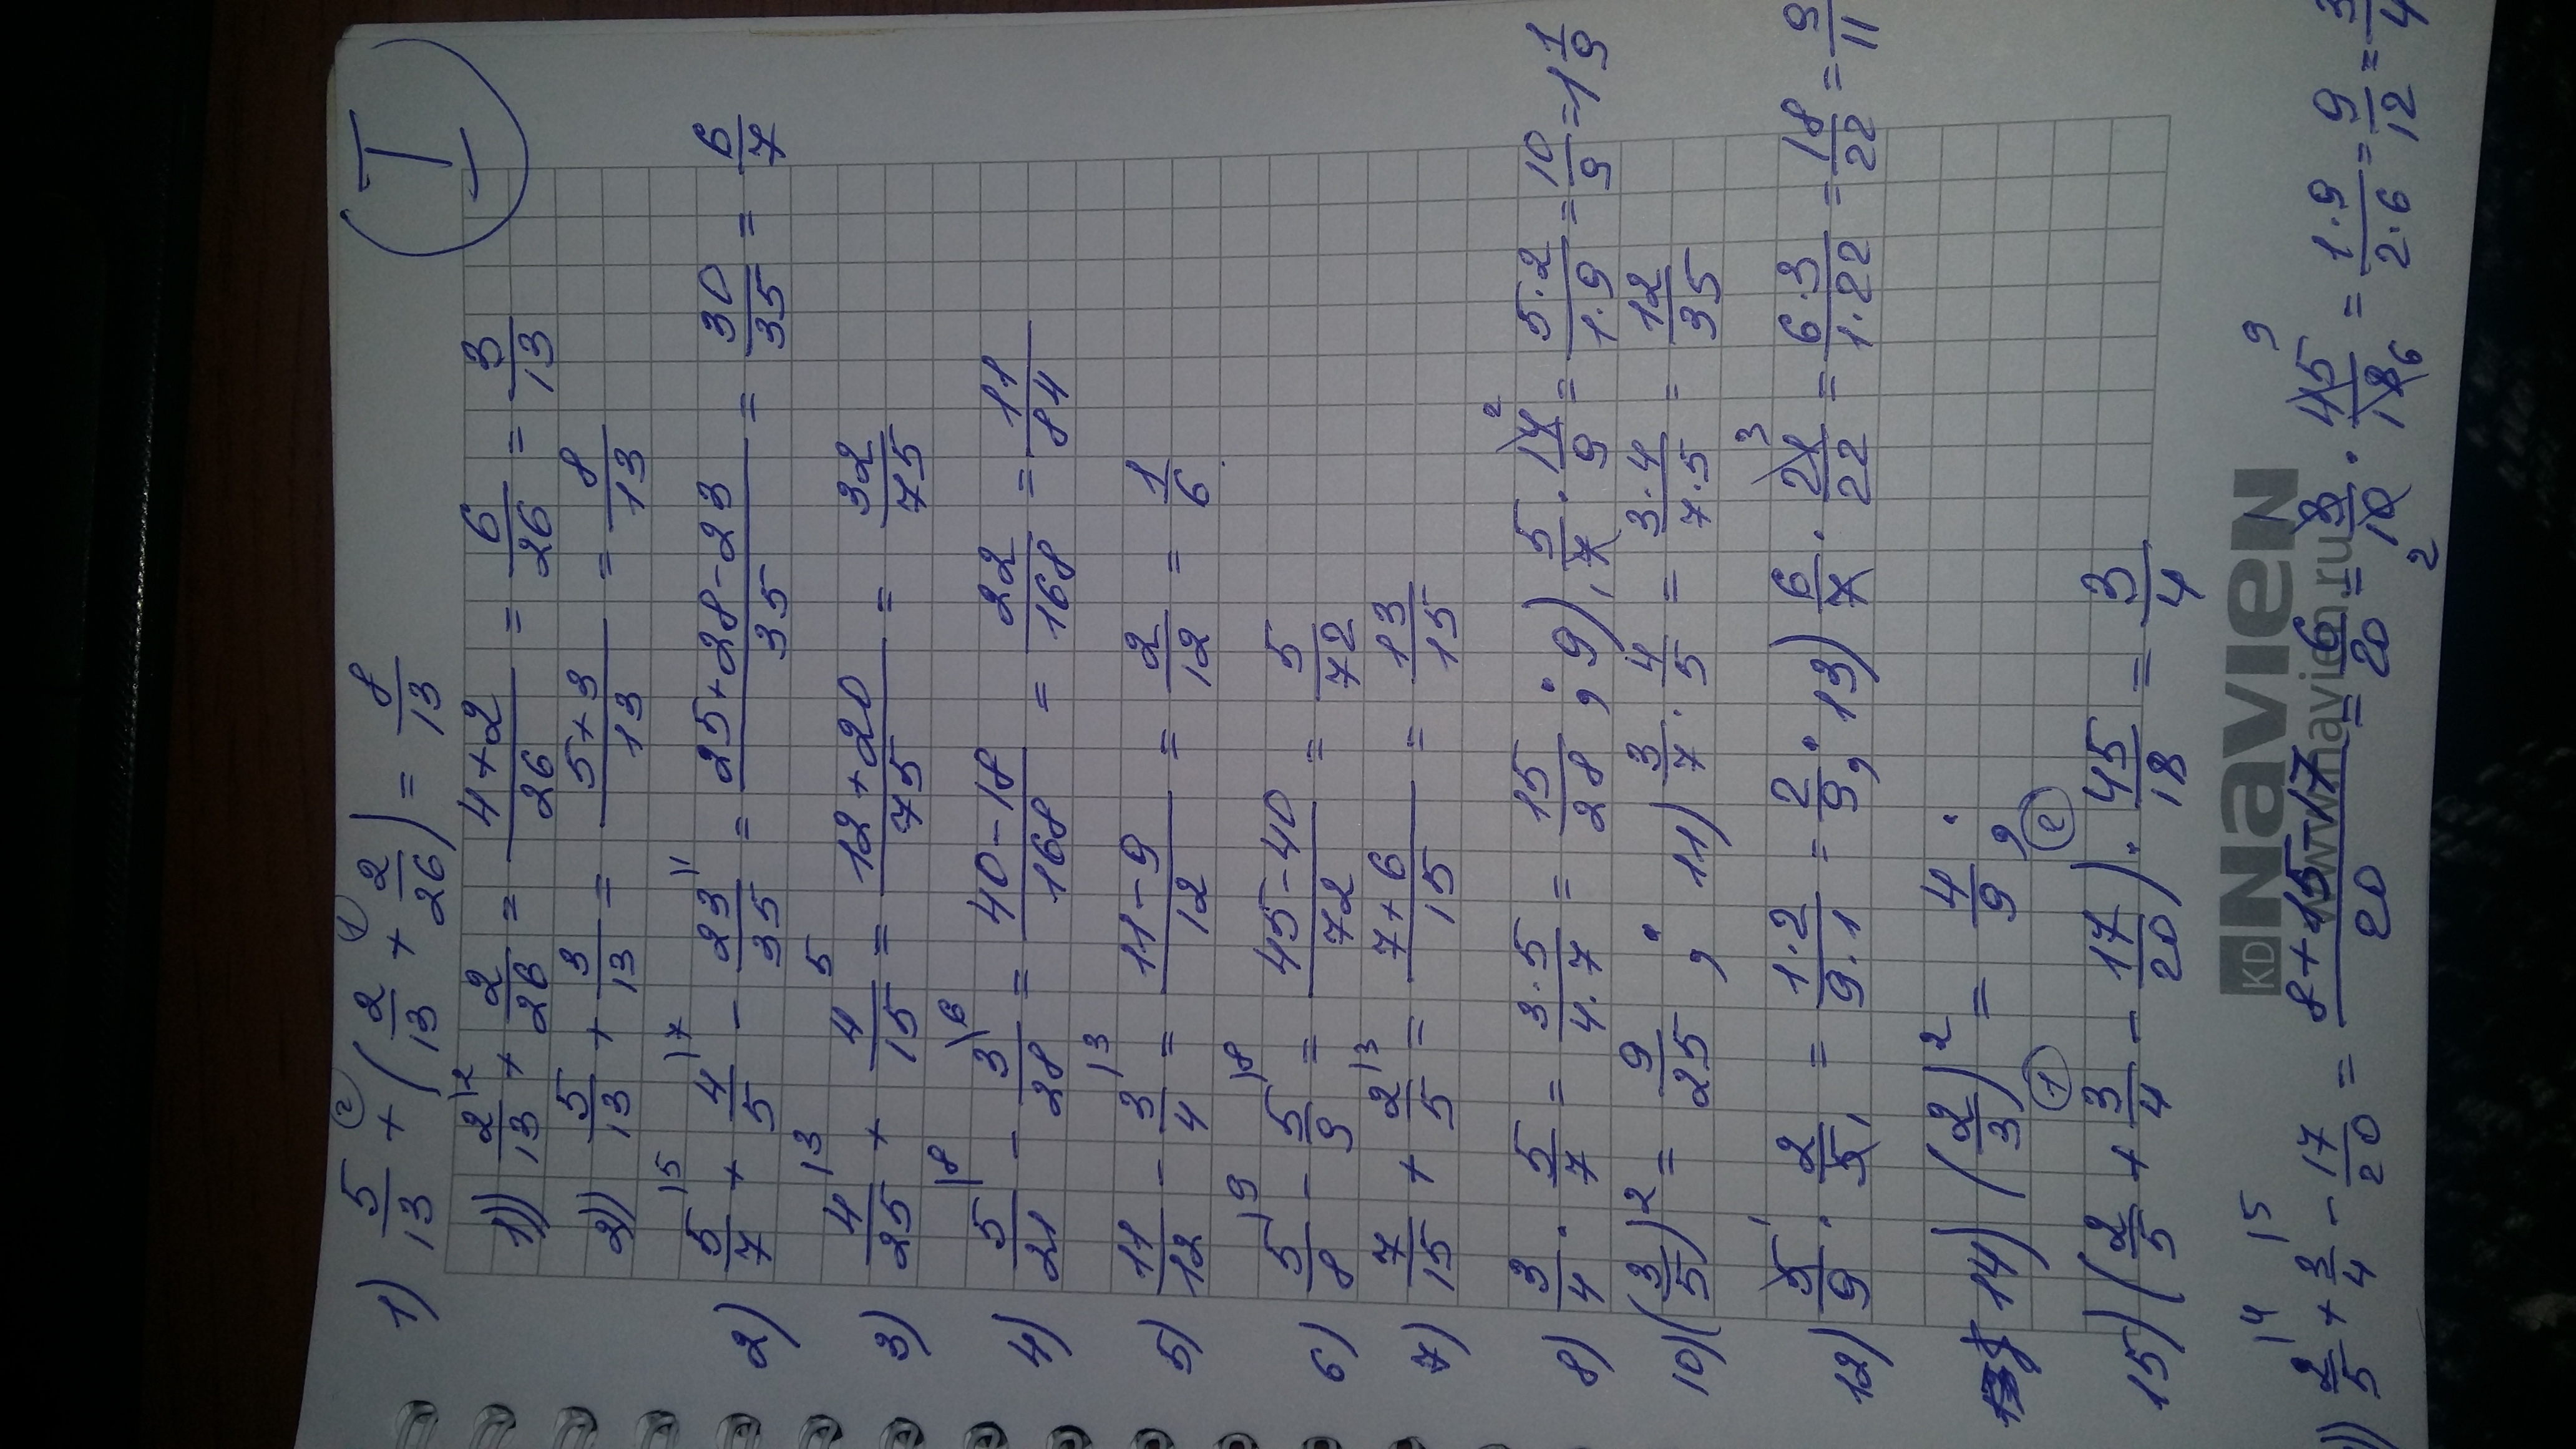 I
1) 5/13 + (2/13 + 2/26) = 8/13
1)) 2/13 + 2/26 = 4+2/26 = 6/26 = 3/13
2)) 5/13 + 3/13 = 5+3/13 = 8/13
2) 5/7 + 4/5 - 23/35 = 25+28-23/35 = 30/35 = 6/7
3) 4/25 + 4/15 = 12+20/75 = 32/75
4) 5/21 - 3/28 = 40-18/168 = 22/168 = 11/84
5) 11/12 - 3/4 = 11-9/12 = 2/12 = 1/6
6) 5/8 - 5/9 = 45-40/72 = 5/72
7) 7/15 + 2/5 = 7+6/15 = 13/15
8) 3/4 · 5/7 = 3·5/4·7 = 15/28 ; 9) 5/7 · 14/9 = 5·2/1·9 = 10/9 = 1 1/9
10) (3/5)² = 9/25 ; 11) 3/7 · 4/5 = 3·4/7·5 = 12/35
12) 5/9 · 2/5 = 1·2/9·1 = 2/9 ; 13) 6/7 · 21/22 = 6·3/1·22 = 18/22 = 9/11
14) (2/3)² = 4/9 ;
15) (2/5 + 3/4 - 17/20) · 45/18 = 3/4
KD NAVIEN
www.navien.ru
2/5 + 3/4 - 17/20 = 8+15-17/20 = 6/20 = 3/10 · 45/18 = 1·9/2·6 = 9/12 = 3/4